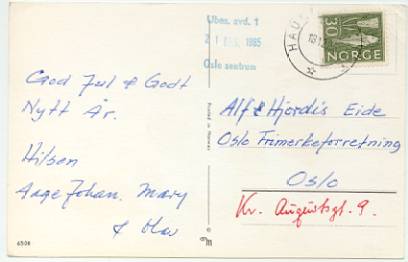 God Jul & Godt
Nytt År.
Hilsen
Aage Johan. Mary
&
Ubes. avd. 1
2 1 1965
Oslo sentrum
HAU
18 12
30
NORGE
Alf & Hjørdis Eide
Oslo Frimerkeforretning
Oslo
Kr. Augustsgt. 9.
6508